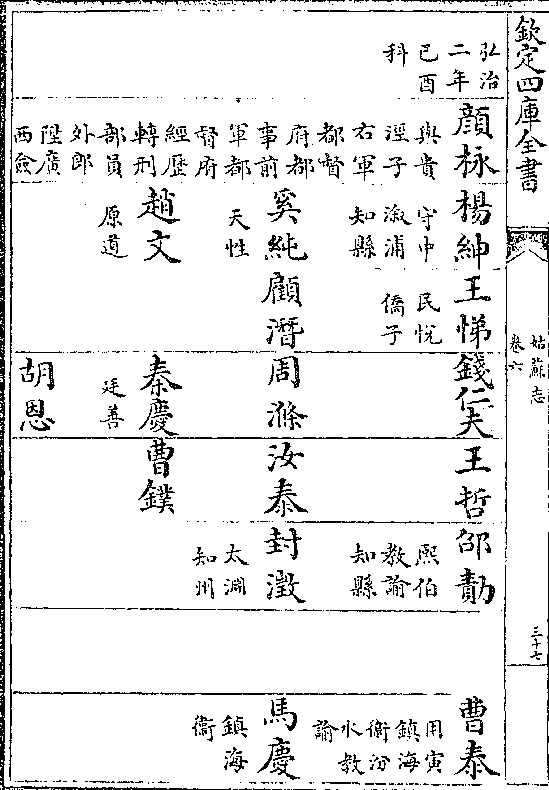 欽定四庫全書
姑蘇志
卷六
三十七
弘治
二年
己酉
科
顔栐
與貴
溼子
右軍
都督
府都
事前
軍都
督府
經歷
轉刑
部員
外郎
陞廣
西僉
楊紳
守中
溆浦
知縣
奚純
天性
趙文
原道
王悌
民悅
僑子
顧潛
錢仁夫
周滌
秦慶
廷善
胡恩
王哲
汝泰
曹鏷
邵勣
熙伯
教諭
知縣
封澂
太淵
知州
曹泰
用寅
鎮海
衞汾
水教
諭
馬慶
鎮海
衞